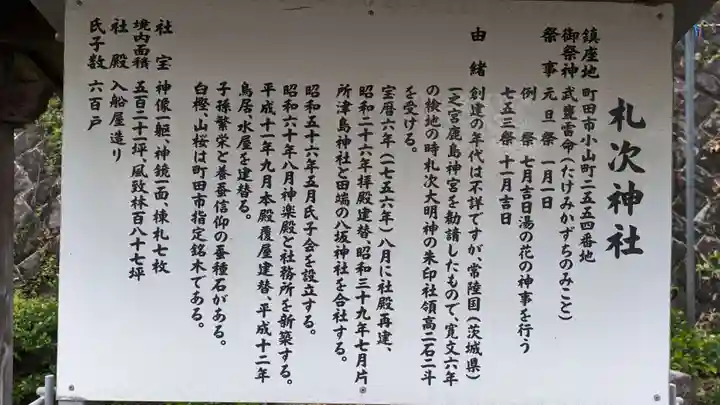 札次神社
鎮座地 町田市小山町二五五四番地
御祭神 武甕雷命(たけみかずちのみこと)
祭事 元旦祭 一月一日
例祭 七月吉日湯の花の神事を行う
七五三祭 十一月吉日
由緒 創建の年代は不詳ですが、常陸国(茨城県)
一之宮鹿島神宮を勧請したもので、寛文六年
の検地の時札次大明神の朱印社領高二石二斗
を受ける。
宝暦六年(一七五六年)八月に社殿再建、
昭和二十六年拝殿建替、昭和三十九年七月片
所津島神社と田端の八坂神社を合社する。
昭和五十六年五月氏子会を設立する。
昭和六十年八月神楽殿と社務所を新築する。
平成十一年九月本殿覆屋建替、平成十二年
鳥居、水屋を建替る。
子孫繁栄と養蚕信仰の蚕種石がある。
白樫、山桜は町田市指定銘木である。
社宝 神像一躯、神鏡一面、棟札七枚
境内面積 五百二十一坪、風致林百八十七坪
社殿 入船屋造り
氏子数 六百戸